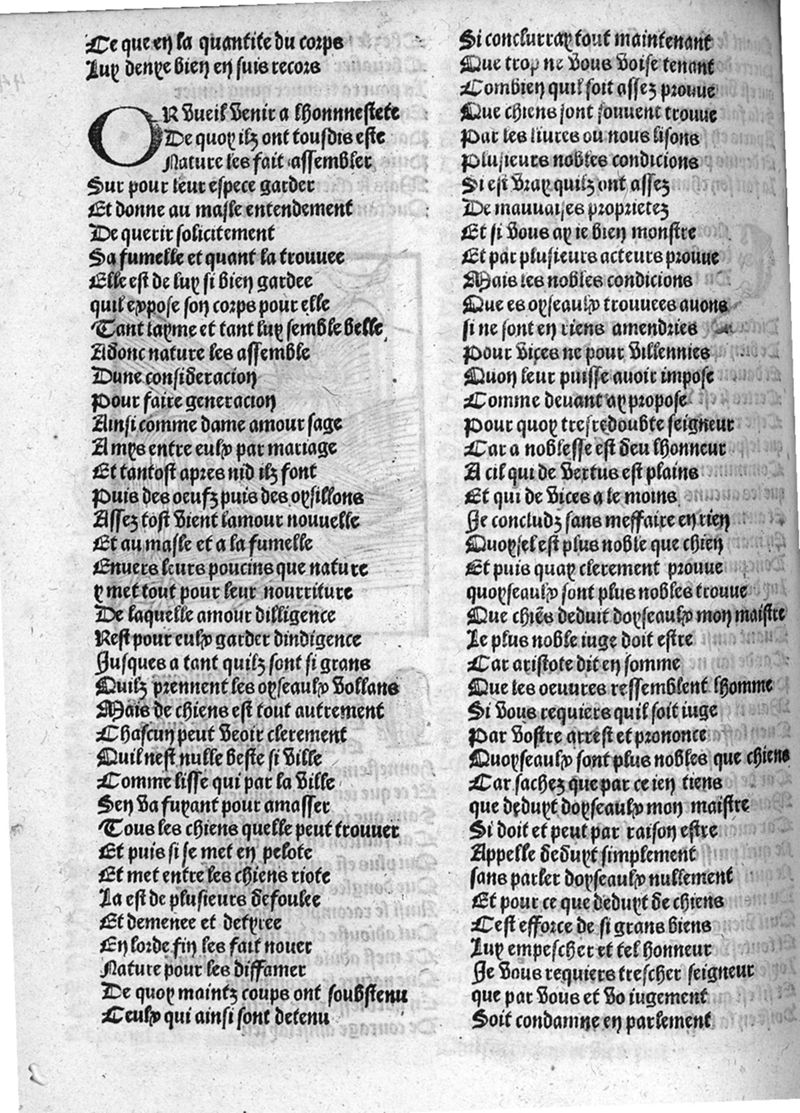 Ce que en la quantite du corps
Luy denye bien en suis recors
OR vueil venir a lhonnnestete
De quoy ilz ont tousdis este
Nature les fait assembler
Sur pour leur espece garder
Et donne au masle entendement
De querir solicitement
Sa fumelle et quant la trouuee
Elle est de luy si bien gardee
quil expose son corps pour elle
Tant layme et tant luy semble belle
Adonc nature les assemble
Dune consideracion
Pour faire generacion
Ainsi comme dame amour sage
Amys entre eulx par mariage
Et tantost apres nid ilz font
Puis des oeufz puis des oysillons
Assez tost vient lamour nouuelle
Et au masle et a la fumelle
Enuers leurs poucins que nature
y met tout pour leur nourriture
De laquelle amour dilligence
Rest pour eulx garder dindigence
Jusques a tant quilz sont si grans
Quilz prennent les oyseaulx vollans
Mais de chiens est tout autrement
Chascun peut veoir clerement
Quil nest nulle beste si ville
Comme lisse qui par la ville
Sen va fuyant pour amasser
Tous les chiens quelle peut trouuer
Et puis si se met en pelote
Et met entre les chiens riote
La est de plusieurs defoulee
Et demenee et detyree
En lorde fin les fait nouer
Nature pour les diffamer
De quoy maintz coups ont soubstenu
Ceulx qui ainsi sont detenu
Si conclurray tout maintenant
Que trop ne vous voise tenant
Combien quil soit assez prouue
Que chiens sont souuent trouue
Par les liures ou nous lisons
Plusieurs nobles condicions
Si est vray quilz ont assez
De mauuaises proprietez
Et si vous ay ie bien monstre
Et par plusieurs acteurs prouue
Mais les nobles condicions
Que es oyseaulx trouuees auons
si ne sont en riens amendries
Pour vices ne pour villennies
Quon leur puisse auoir impose
Comme deuant ay propose
Pour quoy tresredoubte seigneur
Car a noblesse est deu lhonneur
A cil qui de vertus est plains
Et qui de vices a le moins
Je concludz sans meffaire en rien
Quoysel est plus noble que chien
Et puis quay clerement prouue
quoyseaulx sont plus nobles trouue
Que chiēs deduit doyseaulx mon maistre
Le plus noble iuge doit estre
Car aristote dit en somme
Que les oeuures ressemblent lhomme
Si vous requiers quil soit iuge
Par vostre arrest et prononce
Quoyseaulx sont plus nobles que chiens
Car sachez que par ce ien tiens
que deduyt doyseaulx mon maistre
Si doit et peut par raison estre
Appelle deduyt simplement
sans parler doyseaulx nullement
Et pour ce que deduyt de chiens
Cest efforce de si grans biens
Luy empescher et tel honneur
Je vous requiers trescher seigneur
que par vous et vo iugement
Soit condamne en parlement